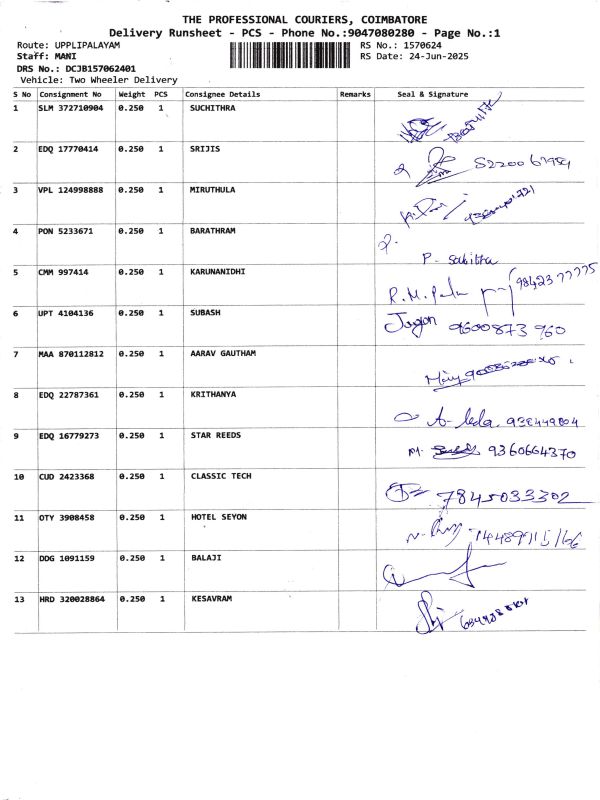 THE PROFESSIONAL COURIERS, COIMBATORE
Delivery Runsheet - PCS - Phone No.:9047080280 - Page No.:1
Route: UPPLIPALAYAM RS No.: 1570624
Staff: MANI RS Date: 24-Jun-2025
DRS No.: DCJB157062401
Vehicle: Two Wheeler Delivery
S No Consignment No Weight PCS Consignee Details Remarks Seal & Signature
1 SLM 372710904 0.250 1 SUCHITHRA
2 EDQ 17770414 0.250 1 SRIJIS
3 VPL 124998888 0.250 1 MIRUTHULA
4 PON 5233671 0.250 1 BARATHRAM
P. Sabitha
5 CMM 997414 0.250 1 KARUNANIDHI
R.M. 98423 77775
6 UPT 4104136 0.250 1 SUBASH
Jagan 9600873 960
7 MAA 870112812 0.250 1 AARAV GAUTHAM
8 EDQ 22787361 0.250 1 KRITHANYA
9 EDQ 16779273 0.250 1 STAR REEDS M. 9360664370
10 CUD 2423368 0.250 1 CLASSIC TECH
7845033302
11 OTY 3908458 0.250 1 HOTEL SEYON
12 DDG 1091159 0.250 1 BALAJI
13 HRD 320028864 0.250 1 KESAVRAM